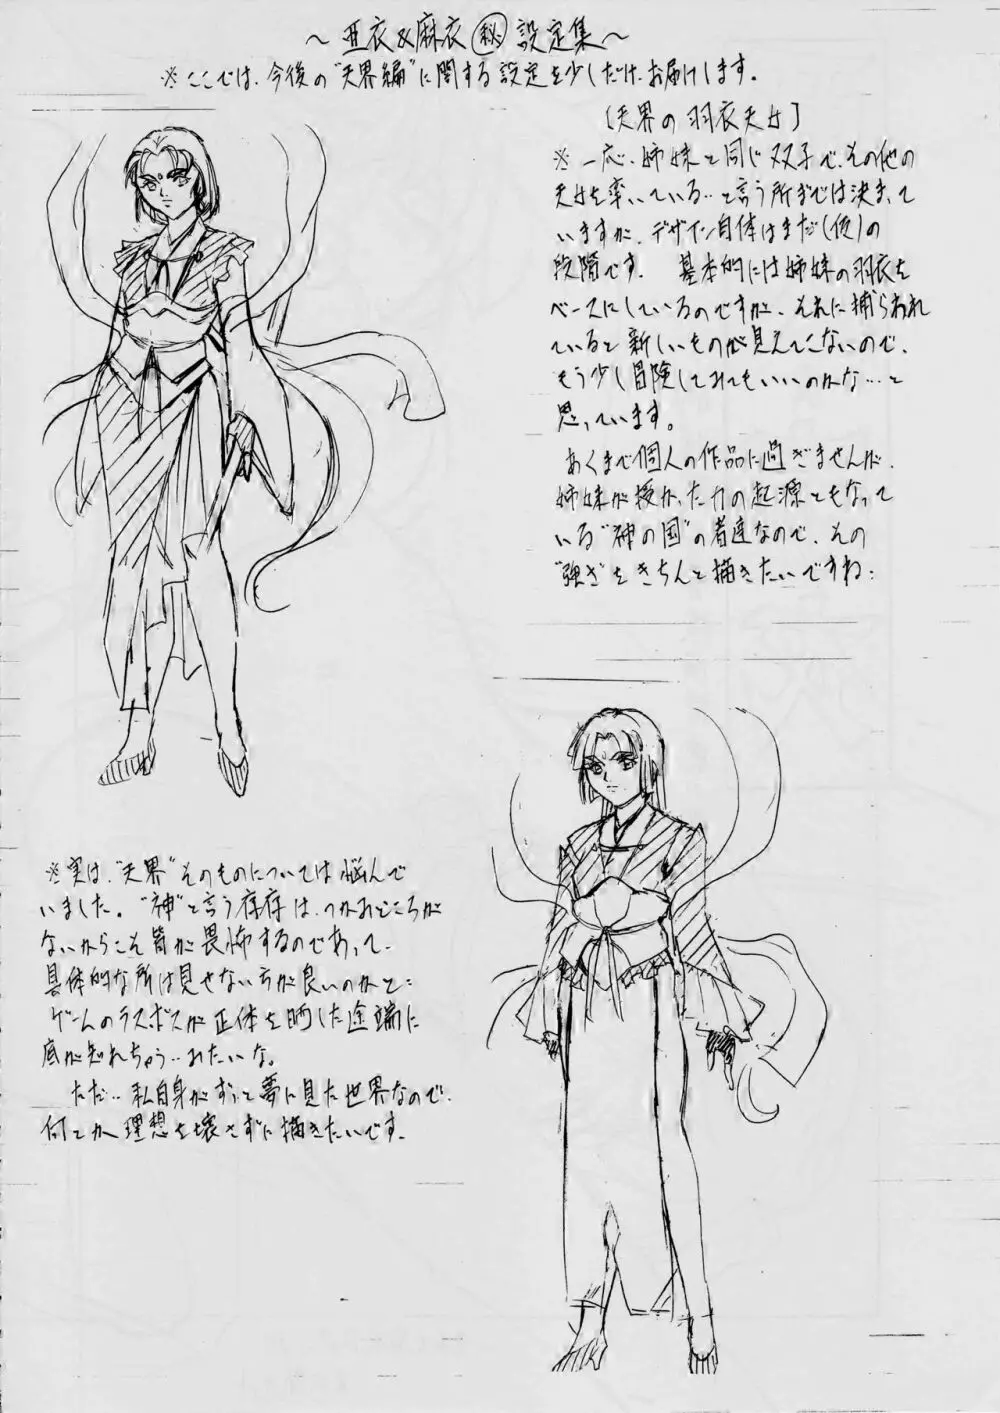 ～亜衣&麻衣㊙設定集～
※ここでは、今後の“天界編”に関する設定を少しだけ、お届けします。
〔天界の羽衣天女〕
※一応、姉妹と同じ双子で、その他の
天女を率いている‥と言う所までは決まって
いますが、デザイン自体はまだ(仮)の
段階です。 基本的には姉妹の羽衣を
ベースにしているのですが、それに捕らわれ
ていると新しいものが見えてこないので、
もう少し冒険してみてもいいのかな…と
思っています。
あくまで個人の作品に過ぎませんが、
姉妹が授かった力の起源ともなって
いる“神の国”の者達なので、その
“強さ”をきちんと描きたいですね‥
※実は、“天界”そのものについては悩んで
いました。“神”と言う存在は、つかみどころが
ないからこそ皆が畏怖するのであって、
具体的な所は見せない方が良いのかと‥
ゲームのラスボスが正体を晒した途端に
底が知れちゃう‥みたいな。
ただ‥私自身がずっと夢に見た世界なので、
何とか理想を壊さずに描きたいです。